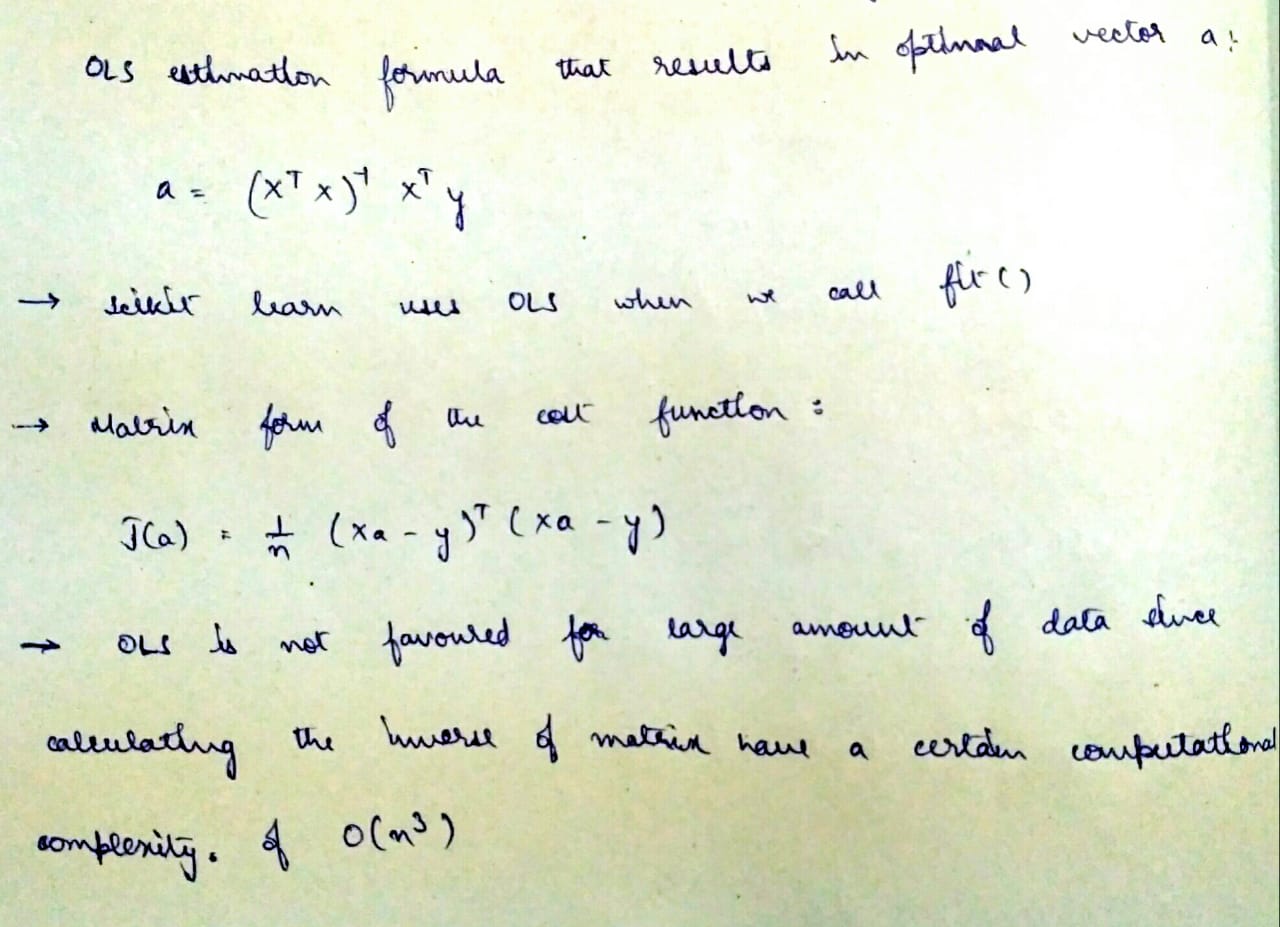 OLS estimation formula that results in optimal vector a:
a = (X^T X)^-1 X^T y
→ scikit learn uses OLS when we call fit()
→ Matrix form of the cost function:
J(a) = 1/n (Xa - y)^T (Xa - y)
→ OLS is not favoured for large amount of data since
calculating the inverse of matrix have a certain computational
complexity. of O(n^3)